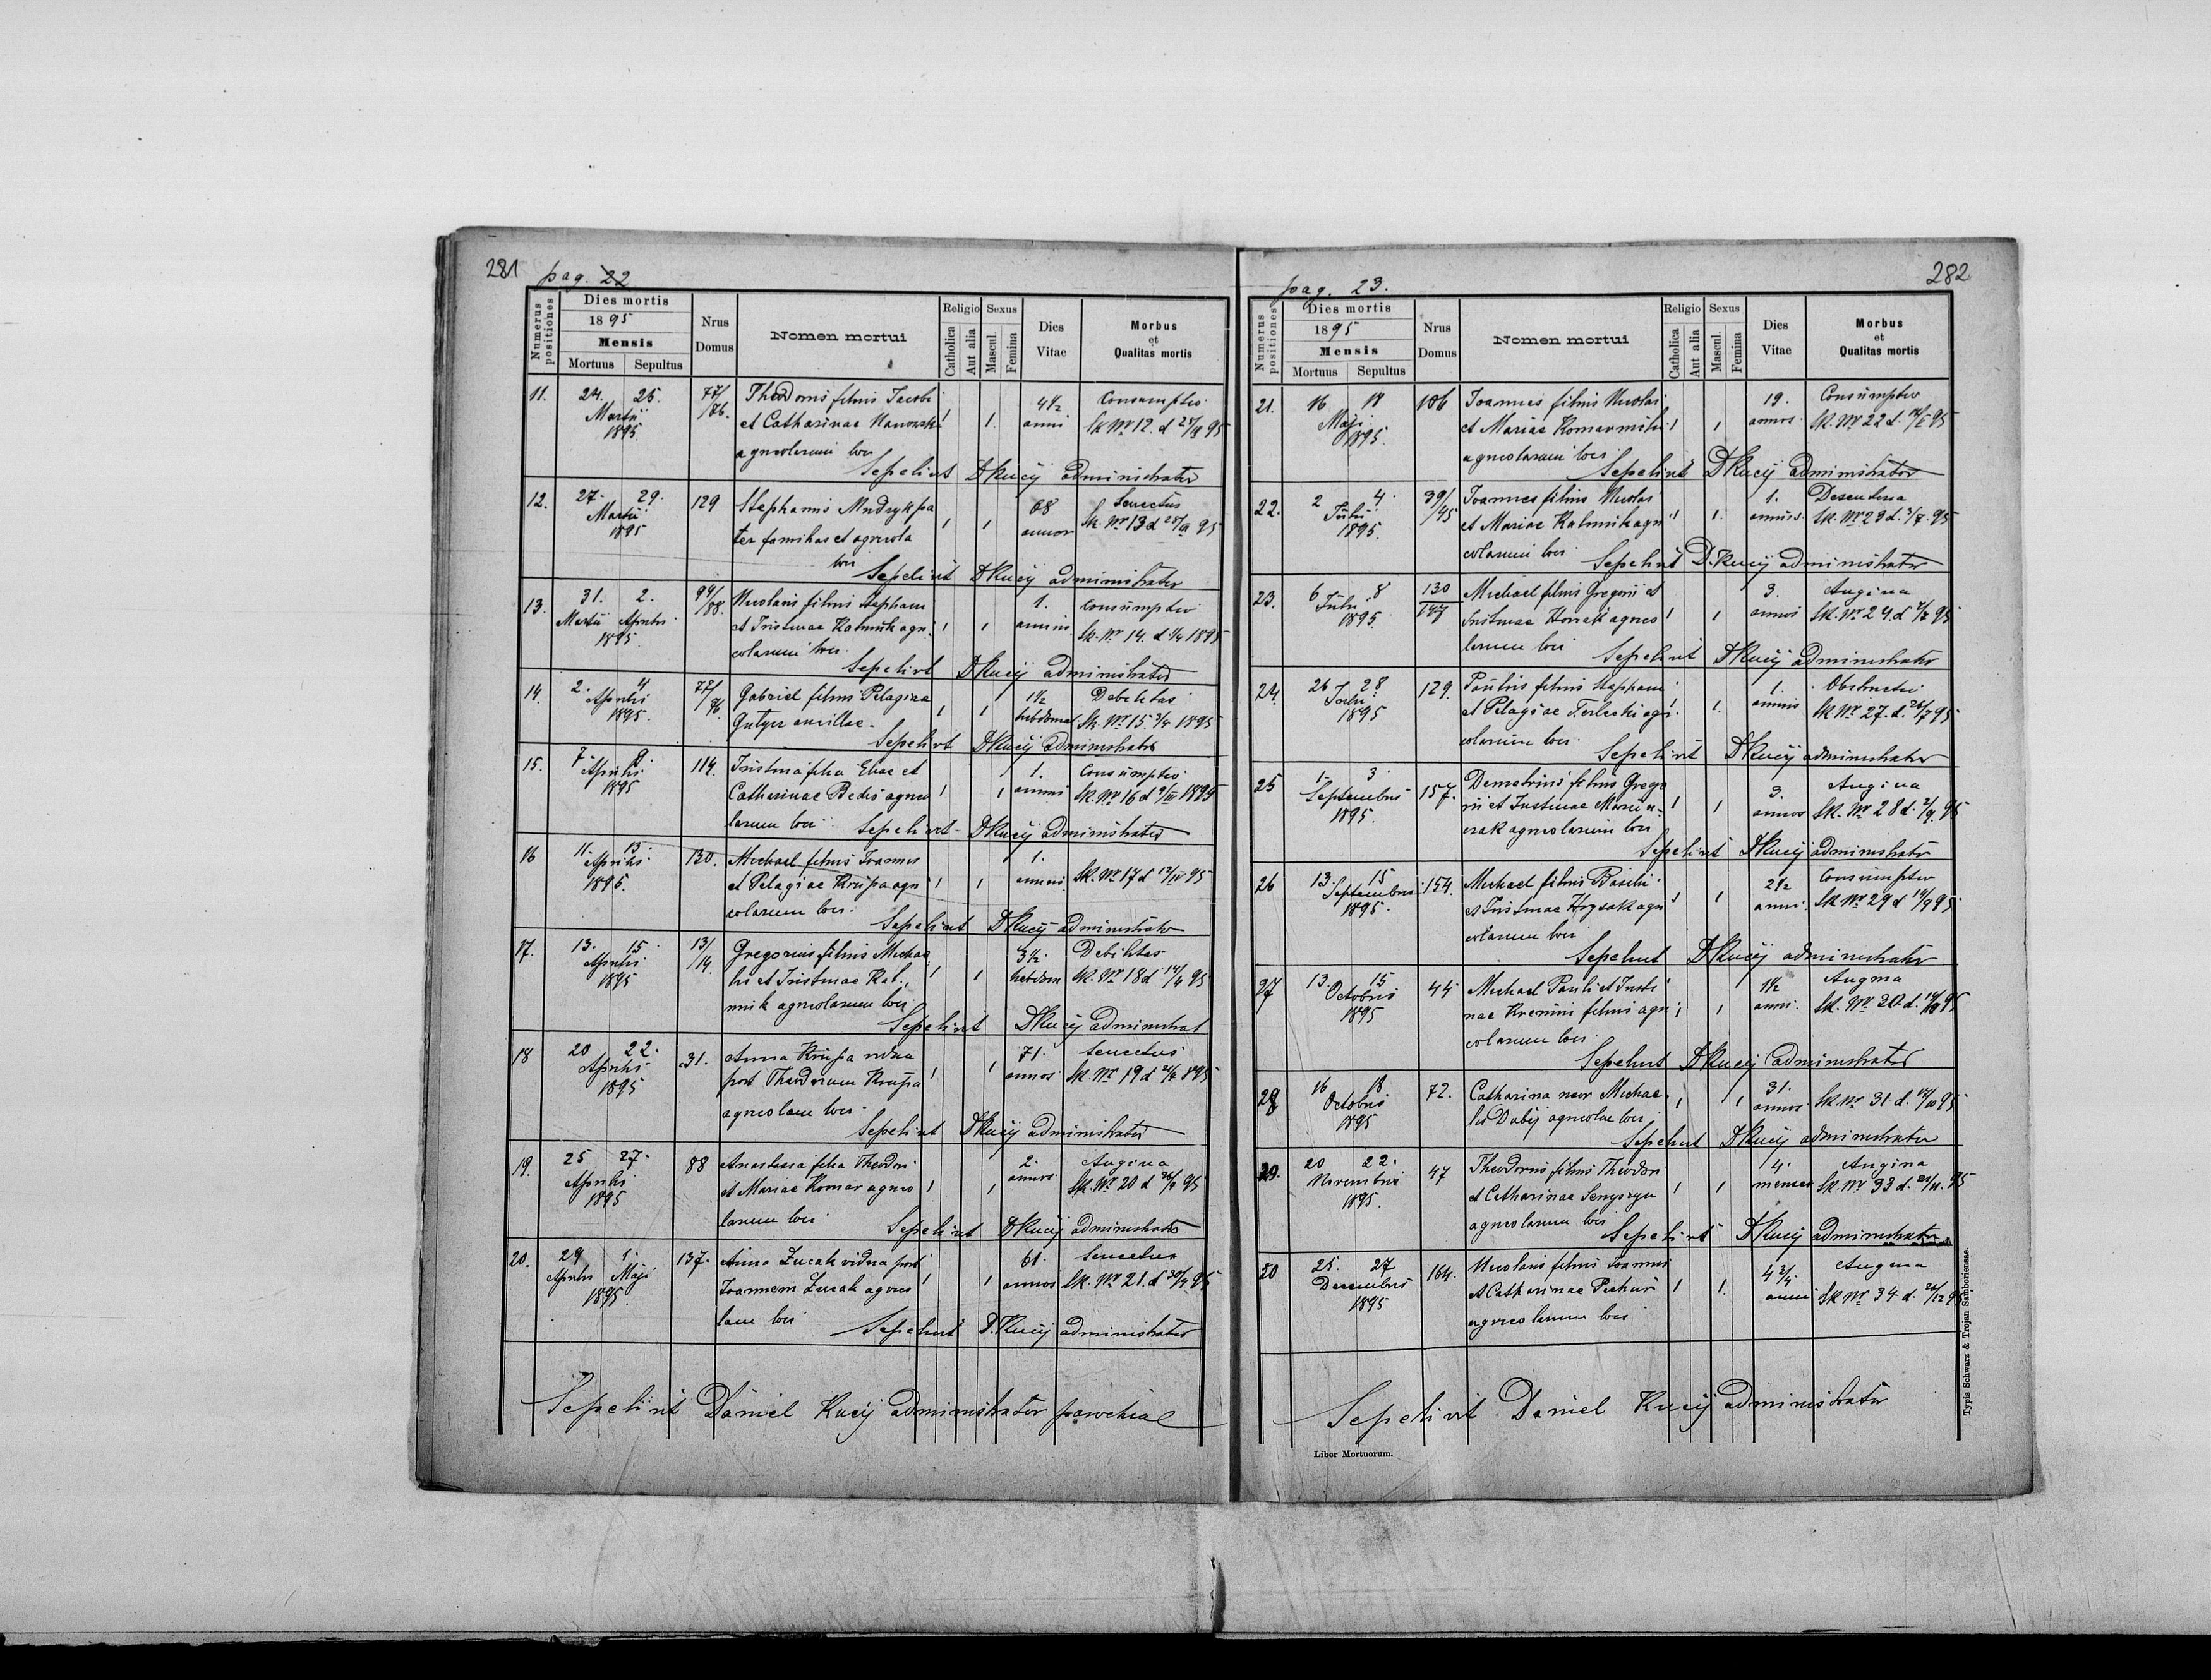 281 pag. 22
Numerus positiones
Dies mortis
1895
Mensis
Mortuus Sepultus
Nrus Domus
Nomen mortui
Religio
Catholica Aut alia
Sexus
Mascul. Femina
Dies Vitae
Morbus et Qualitas mortis
11. 24. 25. 77/76. Theodorus filius Jacobi 4 1/2 Consumptio
Martii et Catharinae 1 1. anni Sk Nr 12. d 95
1895 agricolarum loci
Sepelivit DKucij administrator
12. 27. 29. 129 Stephanus Mudryk pa 68 Senectus
Martii ter familias et agricola 1 1 annor Sk. Nr 13 d 95
1895 loci
Sepelivit DKucij administrator
13. 31. 2. 94/88. Nicolaus filius Stephani 1. consumptio
Martii Aprilis et Justinae Kalmuk agri 1 1 annus Sk. Nr 14. d 1/4 1895
1895 colarum loci.
Sepelivit DKucij administrator
14. 2. 4 77/76. Gabriel filius Pelagiae 1 1/2 Debilitas
Aprilis ancillae 1 1 hebdomat. Sk. Nr 15. 3/4 1895
1895.
Sepelivit DKucij administrator
15. 7. 9. 114. Justina filia Eliae et 1. Consumptio
Aprilis Catharinae agrico 1 1 annus Sk. Nr 16 d 1895
1895 larum loci
Sepelivit DKucij administrator
16 11. 13. 130. Michael filius Joannis 1.
Aprilis et Pelagiae Krupa agri 1 1 annus Sk. Nr 17 d 12/IV 95
1895. colarum loci.
Sepelivit DKucij administrator
17. 13. 15 131/14. Gregorius filius Michae 3 1/2 Debilitas
Aprilis lis et Justinae Kal 1 1 hebdom Sk. Nr 18 d 14/4 95
1895 muk agricolarum loci
Sepelivit DKucij administrat
18 20 22. 31. Anna Krupa vidua 71. Senectus
Aprilis post Theodorum Krupa 1 1 annos Sk. Nr 19 d 895
1895 agricolam loci.
Sepelivit DKucij administrator
19. 25 27. 88 Anastasia filia Theodori 2. Angina
Aprilis et Mariae Komar agrico 1 1 annos Sk. Nr 20 d 95
1895 larum loci
Sepelivit DKucij administrator
20. 29 1. 137. Anna Zucak vidua post 61. Senectus
Aprilis Maji Joannem Zucak agrico 1 1 annos Sk. Nr 21. d 30/4 95
1895. lam loci
Sepelivit D. Kucij administrator
Sepelivit Daniel Kucij administrator parochial
pag. 23. 282
Numerus positiones
Dies mortis
1895
Mensis
Mortuus Sepultus
Nrus Domus
Nomen mortui
Religio
Catholica Aut alia
Sexus
Mascul. Femina
Dies Vitae
Morbus et Qualitas mortis
21. 16 18 106 Joannes filius Nicolai 19. Consumptio
Maji et Mariae 1 1 annos Sk. Nr 22 d. 95
1895. agricolarum loci
Sepelivit DKucij administrator
22. 2 4. 39/45 Joannes filius Nicolai 1.
Julii et Mariae Kalmuk agri 1 1. annus Sk. Nr 23 d. 3/7. 95
1895. colarum loci
Sepelivit D. Kucij administrator
23. 6 8 130/147 Michael filius Gregorii et 3. Angina
Julii Justinae agrico 1 1 annos Sk. Nr 24. d 95
1895. larum loci
Sepelivit DKucij administrator
24. 26 28 129. Paulus filius Stephani 1. Obstructio
Julii et Pelagiae Terlecki agri 1 1. annus Sk Nr 27. d. 95
1895 colarum loci.
Sepelivit DKucij administrator
25 1. 3. 157. Demetrius filius Grego 3. Angina
Septembris rii et Justinae 1 1 annos Sk. Nr 28 d. 2/9. 95
1895. agricolarum loci
Sepelivit DKucij administrator
26 13. 15 154. Michael filius Basilii 2 1/2 Consumptio
Septembris et Justinae Hrysak agri 1 1 anni. Sk Nr 29 d 14/9 95
1895. colarum loci
Sepelivit DKucij administrator
27 13. 15 44 Michael Pauli et Justi 1 1/2 Angina
Octobris nae filius agri 1 1 anni. Sk. Nr 30. d. 95
1895 colarum loci
Sepelivit DKucij administrator
28 16 18 72. Catharina uxor Michae 31.
Octobris lis Dubij agricolae loci 1 1 annos Sk Nr 31 d. 95
1895
Sepelivit DKucij administrator
29. 20 22. 47 Theodorus filius Theodori 4. Angina
Novembris et Catharinae 1 1 menses Sk. Nr 33 d. 21/11. 95
1895. agricolarum loci
Sepelivit DKucij administrator
30 25. 27 164. Nicolaus filius Joannis 4 3/4 Angina
Decembris et Catharinae 1 1. anni Sk Nr 34 d. 26/12 95
1895 agricolarum loci
Sepelivit Daniel Kucij administrator
Liber Mortuorum.
Typis Schwarz & Trojan Samboriensae.